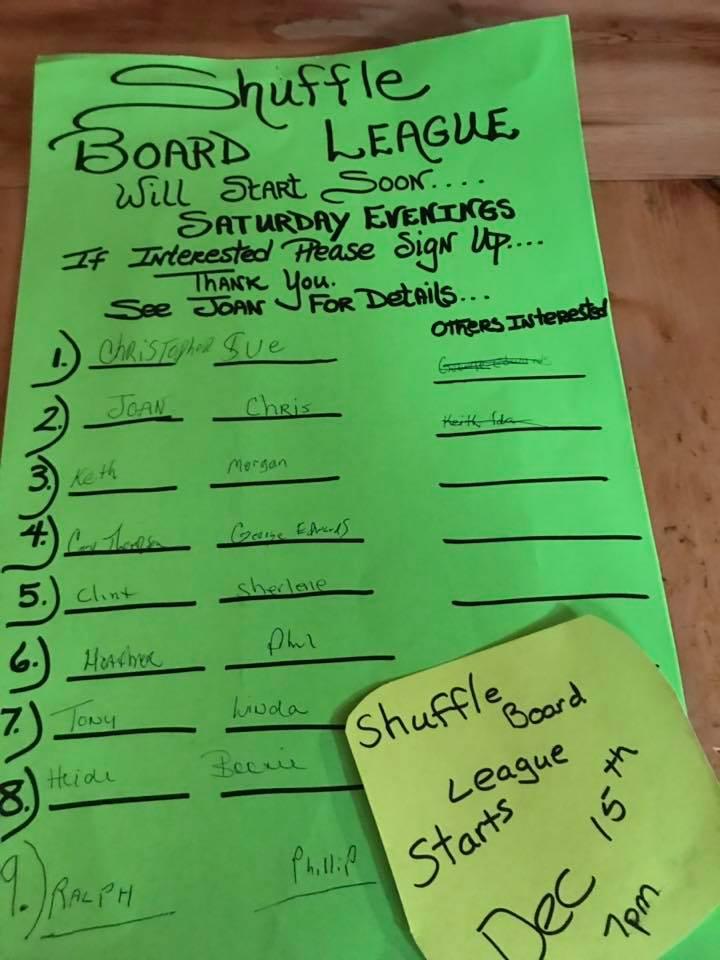 Shuffle
BOARD LEAGUE
Will START SOON....
SATURDAY EVENINGS
If Interested Please Sign Up....
THANK YOU.
See JOAN FOR Details...
OTHERS INTERESTED
1.) CHRISTOPHER SUE
2.) JOAN CHRIS
Keith Ida
3.) Keith Morgan
4.) Thompson George Edwards
5.) Clint Sherlene
6.) HEATHER Phil
7.) TONY LINDA
8.) Heidi
9.) RALPH PhilliP
Shuffle Board
League
Starts
Dec 15th
7pm